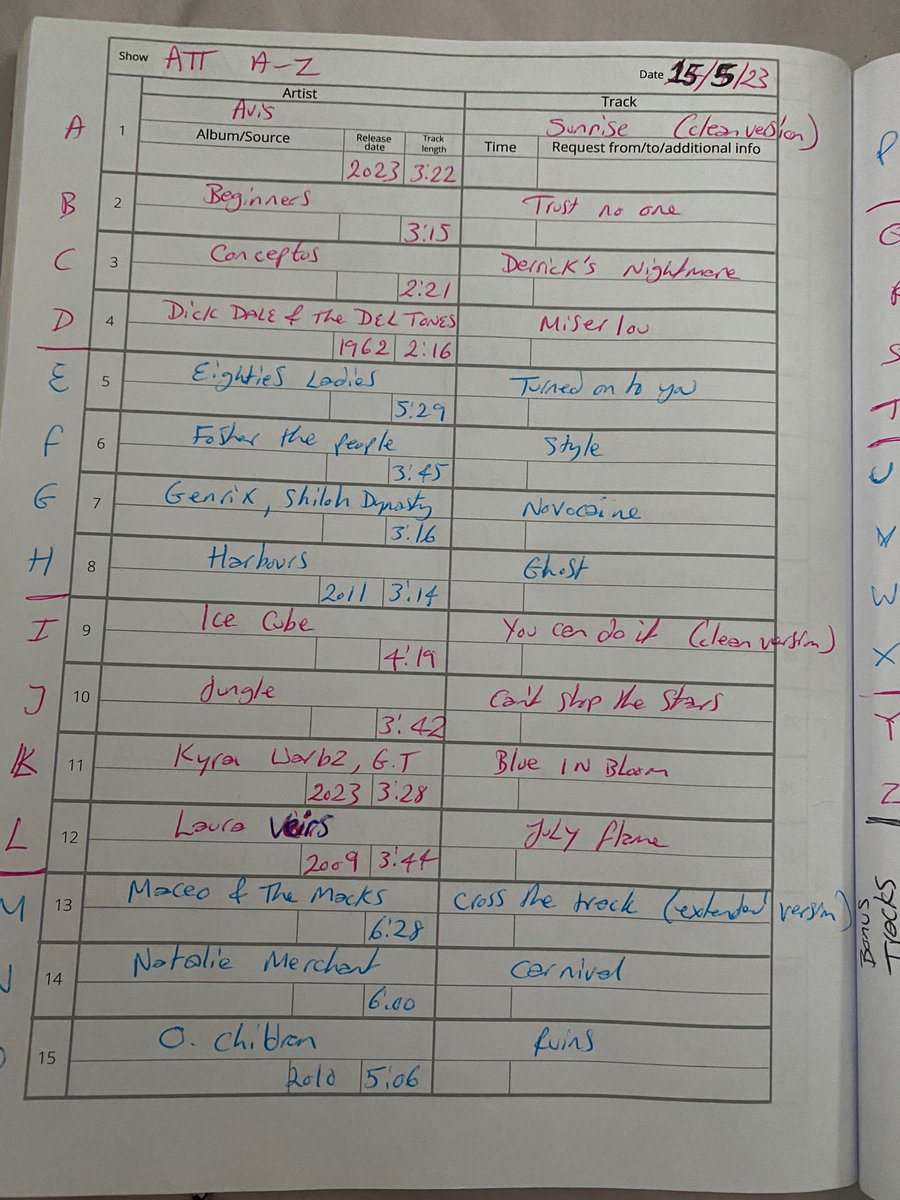 Show ATT A-Z Date 15/5/23
Artist Track
A 1 Avis Sunrise (clean version)
Album/Source Release date Track length Time Request from/to/additional info
2023 3:22
B 2 Beginners Trust no one
3:15
C 3 Conceptus Derrick's Nightmare
2:21
D 4 Dick DALE & the DEL TONES Miserlou
1962 2:16
E 5 Eighties Ladies Turned on to you
5:29
F 6 Foster the people Style
3:45
G 7 Genrix, Shiloh Dynasty Novocaine
3:16
H 8 Harbours Ghost
2011 3:14
I 9 Ice Cube You can do it (clean version)
4:19
J 10 Jungle Can't stop the Stars
3:42
K 11 Kyra Warbz, G.T Blue IN Bloom
2023 3:28
L 12 Laura Veirs July flame
2009 3:44
M 13 Maceo & The Macks Cross the track (extended version)
6:28
14 Natalie Merchant Carnival
6:00
15 O. Children Ruins
2010 5:06
P
S
T
U
W
X
Y
Z
Bonus
Tracks